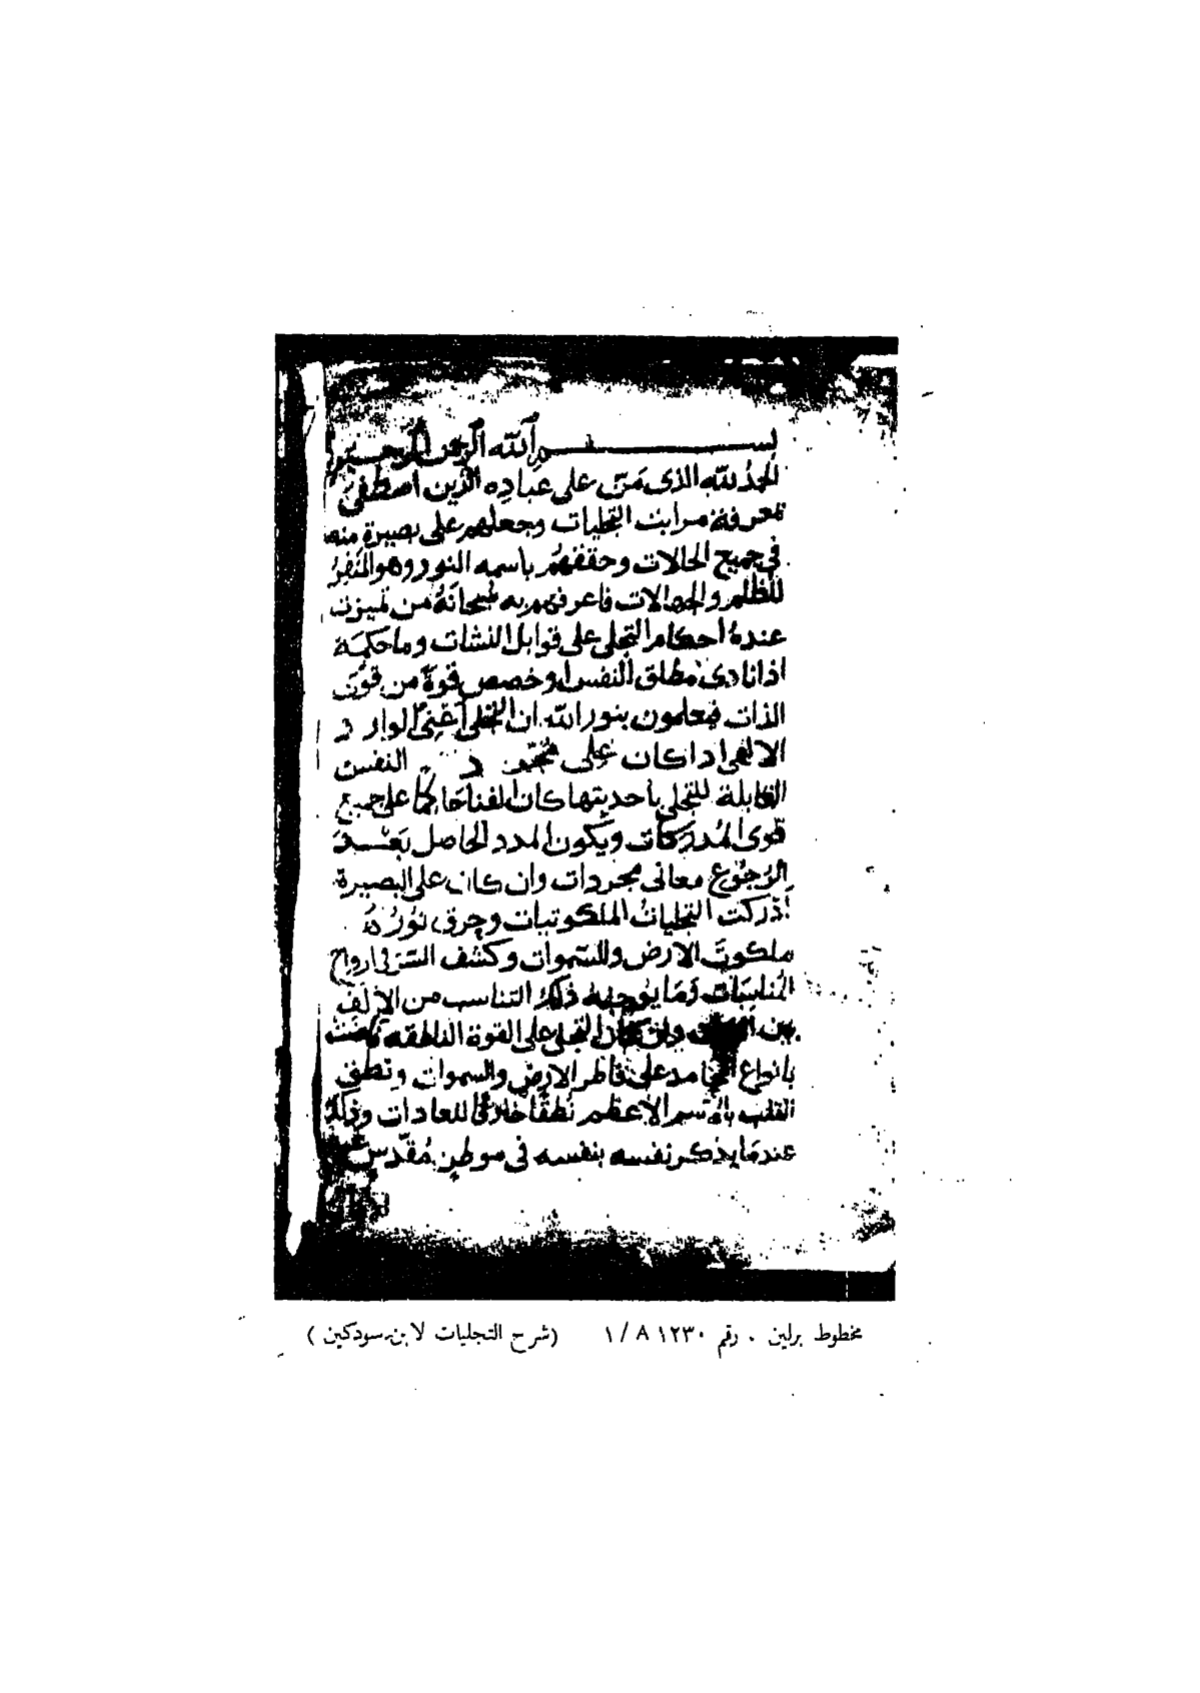 بســـم الله الرحمن الرحيم
الحمد لله الذى مَنّ على عباده الذين اصطفى
بمعرفة مراتب التجليات وجعلهم على بصيرة منه
فى جميع الحالات وحققهم باسمه النور وهو المنفرُ
للظلم والجهالات فاعرفهم به سُبحانَهُ من تميزت
عندهُ احكام التجلى على قوابل النشات وما حكمه
اذا نادى مطلق النفس او خصص قوةً من قوى
الذات فيعلمون بنور الله ان التجلى اعنى الوارد
الالهى اذا كان على النفس
القابلة للتجلى باحديتها كان الفنا حاكما على جميع
قوى المُدركات ويكون المدد الحاصل بَعْـد
الرُجُوع معانى مجردات وان كان على البصيرة
أدركت التجليات الملكوتيات وخرق نُورُهُ
ملكوتَ الارض والسموات وكشف السّرّ فى ارواح
المُناسَبات وَمَا يوجبه ذلك التناسب من الالف
بين وان كان التجلى على القوة الناطقه نَطَقت
بانواع المحامد على فاطر الارض والسموات ونطق
القلب بالاسم الاعظم نُطقًا خارقًا للعادات وذلك
عندمَا يذكر نفسه بنفسه فى موطن مُقدّس عن
مخطوط برلين . رقم ١٢٣٠ A / ١ (شرح التجليات لابن سودكين)